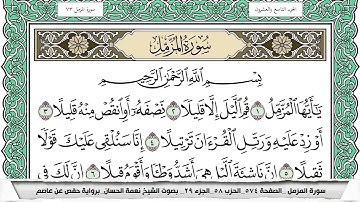 سورة المزمل ٧٣
الجزء التاسع والعشرون
سُورَةُ المُزَّمِّلِ
بِسْمِ اللَّهِ الرَّحْمَٰنِ الرَّحِيمِ
يَٰٓأَيُّهَا ٱلْمُزَّمِّلُ ١ قُمِ ٱلَّيْلَ إِلَّا قَلِيلًا ٢ نِّصْفَهُۥٓ أَوِ ٱنقُصْ مِنْهُ قَلِيلًا ٣
أَوْ زِدْ عَلَيْهِ وَرَتِّلِ ٱلْقُرْءَانَ تَرْتِيلًا ٤ إِنَّا سَنُلْقِى عَلَيْكَ قَوْلًا
ثَقِيلًا ٥ إِنَّ نَاشِئَةَ ٱلَّيْلِ هِىَ أَشَدُّ وَطْـًٔا وَأَقْوَمُ قِيلًا ٦ إِنَّ لَكَ فِى
سورة المزمل _ الصفحة ٥٧٤_ الحزب ٥٨_ الجزء ٢٩_ بصوت الشيخ نعمة الحسان_ برواية حفص عن عاصم